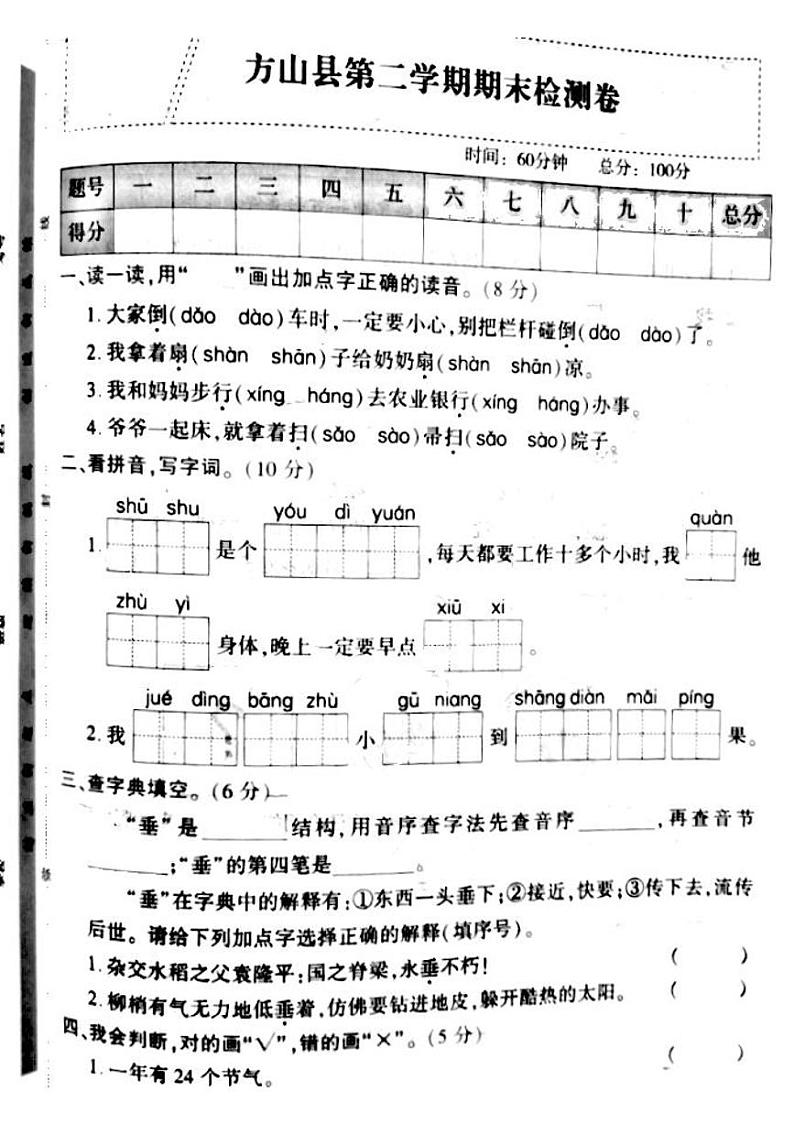 方山县第二学期期末检测卷
时间：60分钟 总分：100分
题号 一 二 三 四 五 六 七 八 九 十 总分
得分
一、读一读，用“ ”画出加点字正确的读音。（8分）
1. 大家倒（dǎo dào）车时，一定要小心，别把栏杆碰倒（dǎo dào）了。
2. 我拿着扇（shàn shān）子给奶奶扇（shàn shān）凉。
3. 我和妈妈步行（xíng háng）去农业银行（xíng háng）办事。
4. 爷爷一起床，就拿着扫（sǎo sào）帚扫（sǎo sào）院子。
二、看拼音，写字词。（10分）
shū shu yóu dì yuán quàn
1. 是个 ，每天都要工作十多个小时，我 他
zhù yì xiū xi
身体，晚上一定要早点 。
jué dìng bāng zhù gū niang shāng diàn mǎi píng
2. 我 小 到 果。
三、查字典填空。（6分）
“垂”是 结构，用音序查字法先查音序 ，再查音节
；“垂”的第四笔是 。
“垂”在字典中的解释有：①东西一头垂下；②接近，快要；③传下去，流传
后世。请给下列加点字选择正确的解释（填序号）。
1. 杂交水稻之父袁隆平：国之脊梁，永垂不朽！ （ ）
2. 柳梢有气无力地低垂着，仿佛要钻进地皮，躲开酷热的太阳。 （ ）
四、我会判断，对的画“√”，错的画“×”。（5分）
1. 一年有24个节气。 （ ）